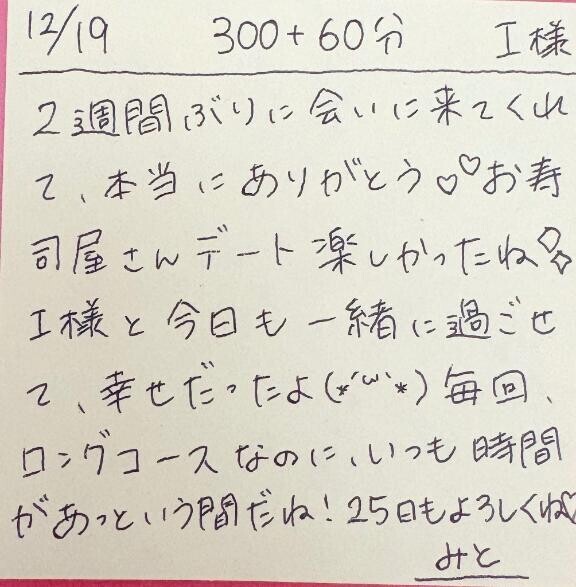 12/19 300+60分 I様
2週間ぶりに会いに来てくれ
て、本当にありがとう♡♡お寿
司屋さんデート楽しかったね
I様と今日も一緒に過ごせ
て、幸せだったよ(*´ω`*)毎回、
ロングコースなのに、いつも時間
があっという間だね!25日もよろしくね♡
みと